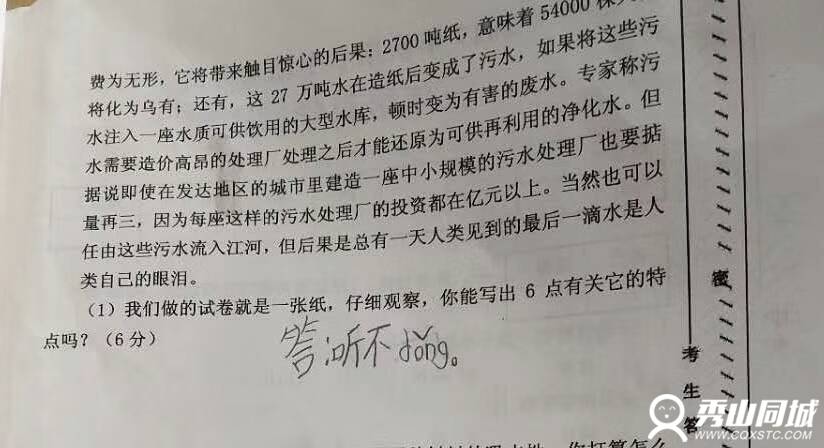 费为无形，它将带来触目惊心的后果：2700 吨纸，意味着 54000 棵
将化为乌有；还有，这 27 万吨水在造纸后变成了污水，如果将这些污
水注入一座水质可供饮用的大型水库，顿时变为有害的废水。专家称污
水需要造价高昂的处理厂处理之后才能还原为可供再利用的净化水。但
据说即使在发达地区的城市里建造一座中小规模的污水处理厂也要掂
量再三，因为每座这样的污水处理厂的投资都在亿元以上。当然也可以
任由这些污水流入江河，但后果是总有一天人类见到的最后一滴水是人
类自己的眼泪。
（1）我们做的试卷就是一张纸，仔细观察，你能写出 6 点有关它的特
点吗？（6 分）
答：听不dǒng。
你打算怎么
密
考
生
答
秀山同城
WWW.COXSTC.COM